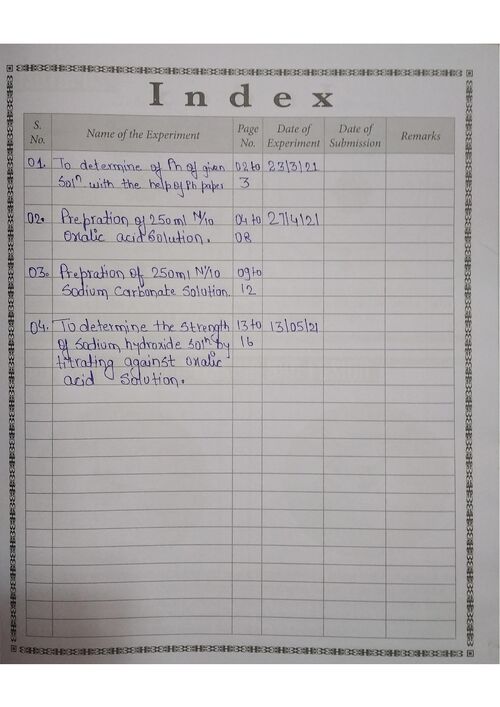 Index
S. No. Name of the Experiment Page No. Date of Experiment Date of Submission Remarks
01. To determine of Ph of given 02 to 23/3/21
Solⁿ with the help of Ph paper 3
02. Prepration of 250 ml N/10 04 to 27/4/21
Oxalic acid Solution. 08
03. Prepration of 250ml N/10 09 to
Sodium Carbonate Solution. 12
04. To determine the Strength 13 to 13/05/21
of Sodium hydroxide Solⁿ by 16
titrating against oxalic
acid Solution.